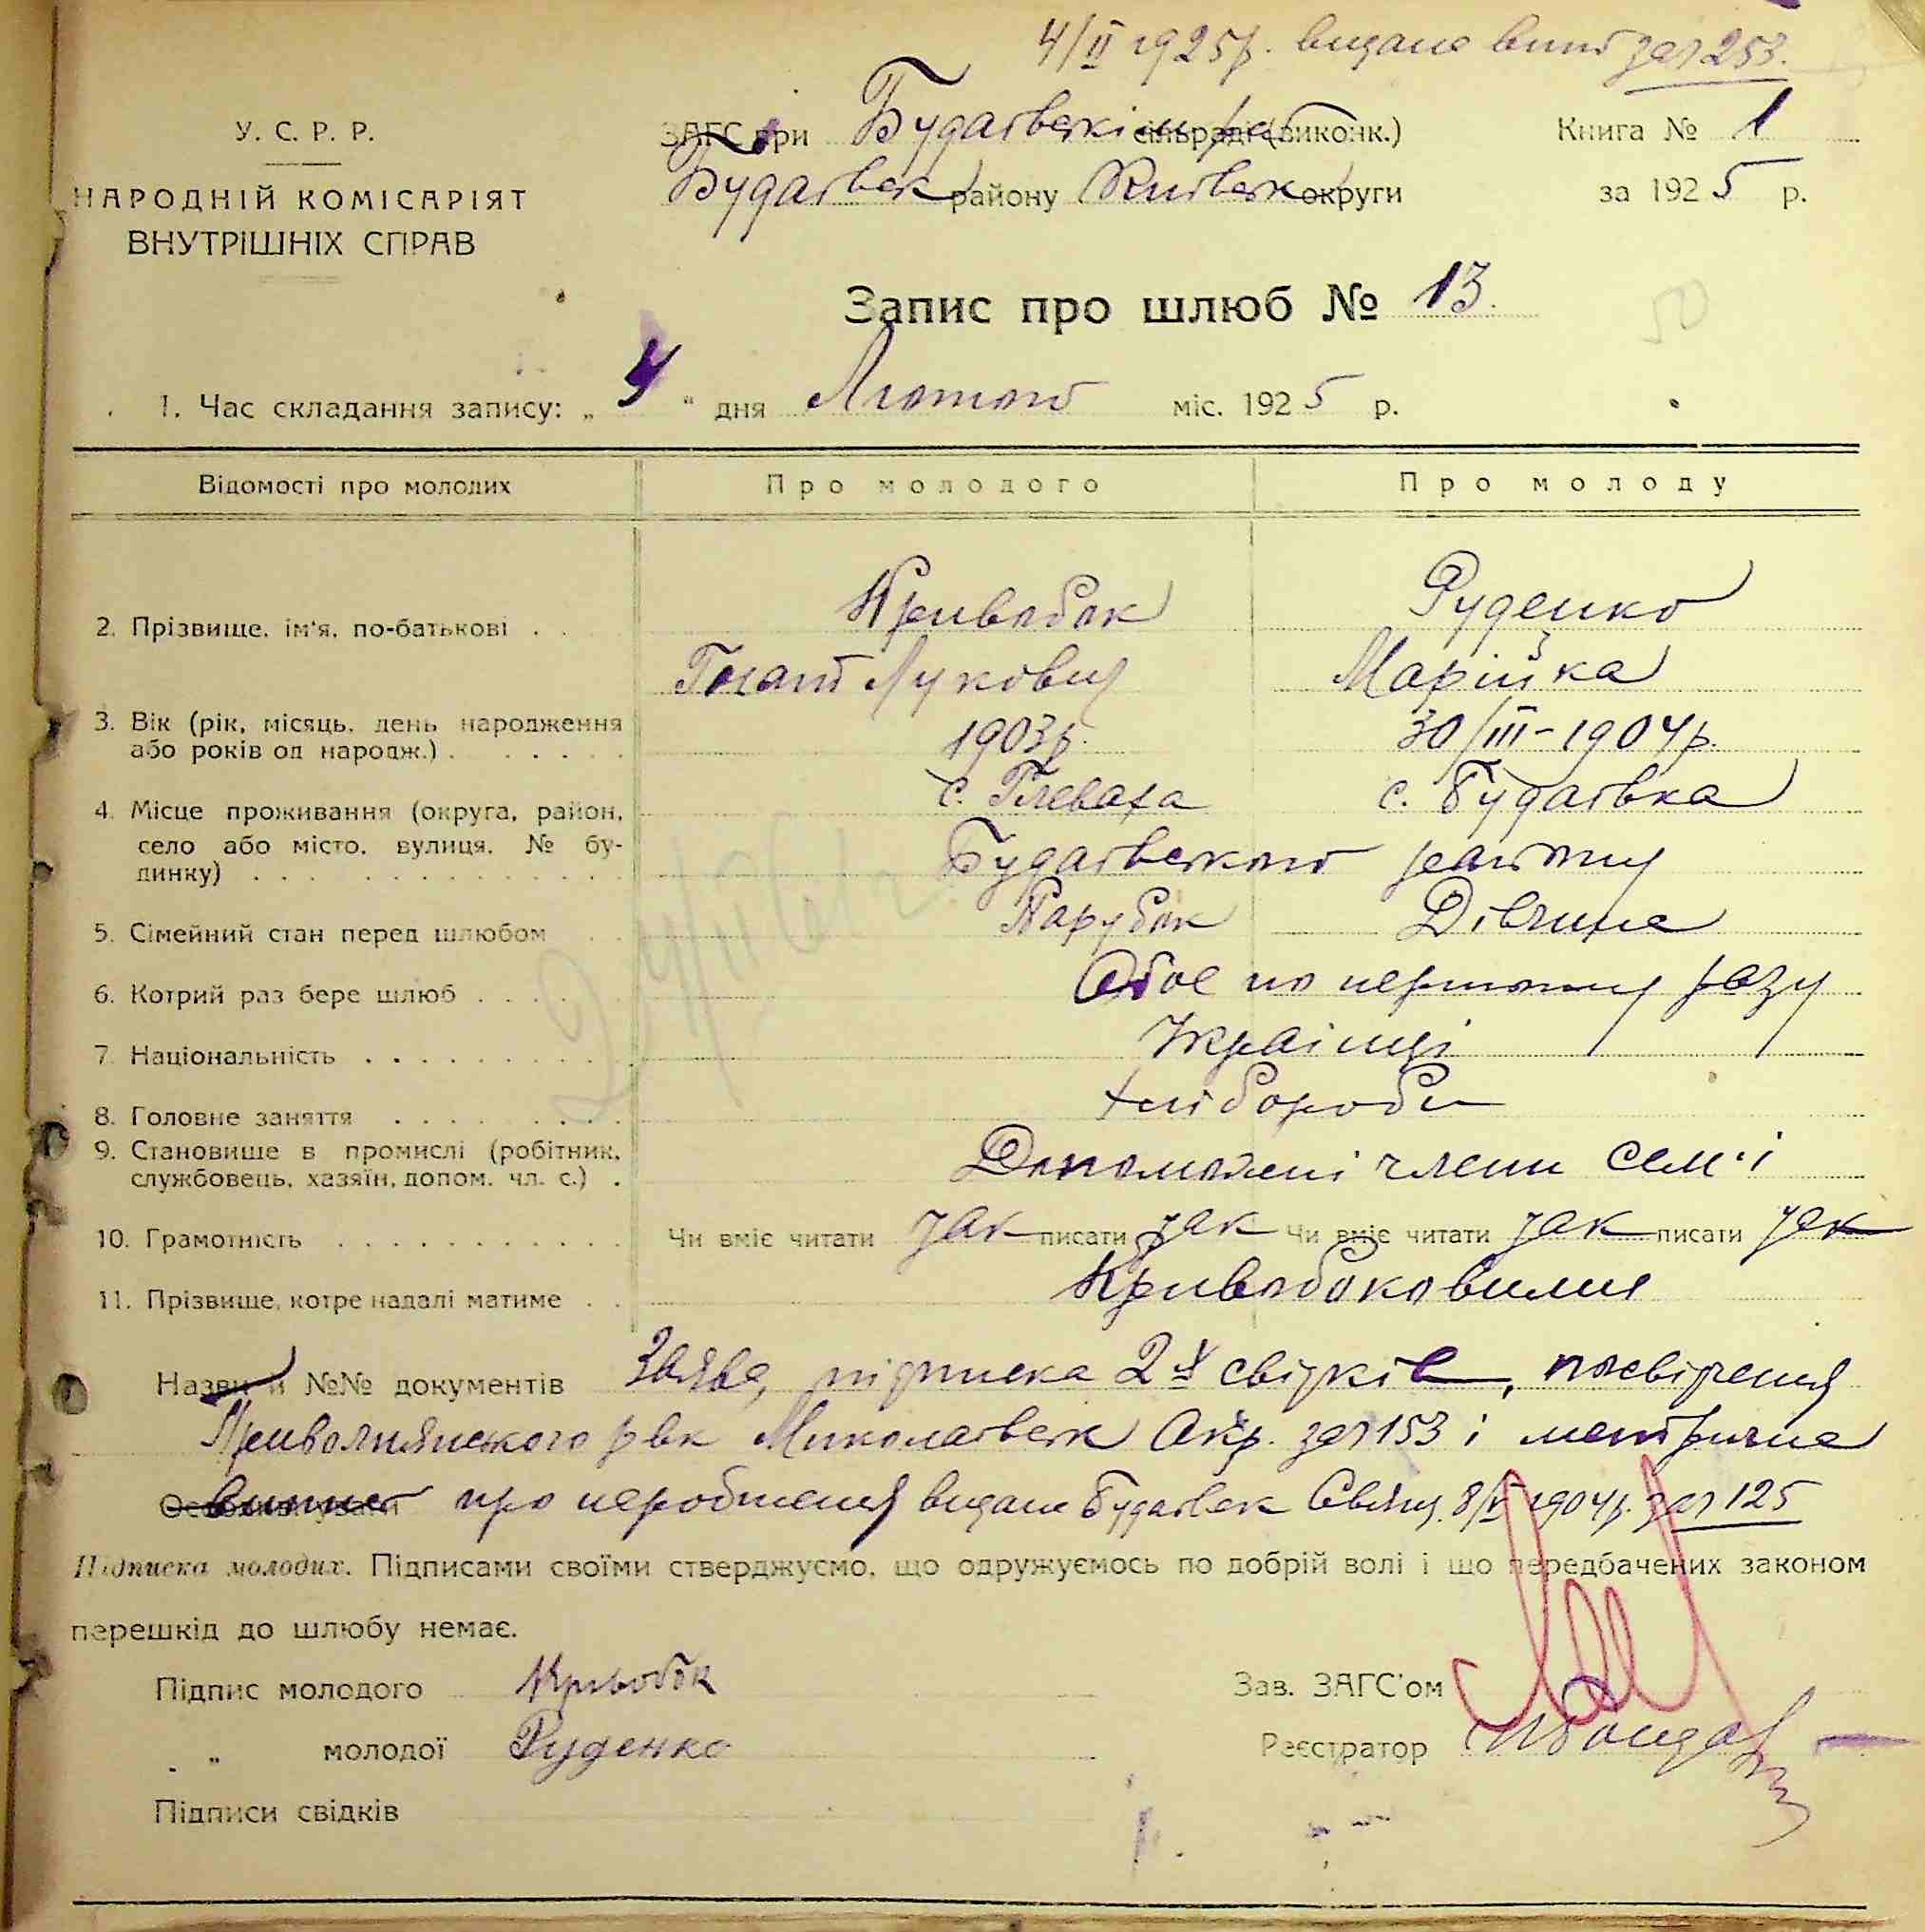 4/II 1925р. видано випіс за № 253.
У. С. Р. Р.
НАРОДНІЙ КОМІСАРІЯТ
ВНУТРІШНІХ СПРАВ
ЗАГС при Будаївські сільраді (виконк.)
Будаївськ району Київськ округи
Книга № 1
за 1925 р.
Запис про шлюб № 13.
50
1. Час складання запису: „ 4 “ дня Лютого міс. 1925 р.
Відомості про молодих
Про молодого
Про молоду
2. Прізвище, ім'я, по-батькові . .
Кривобок
Лукович
Руденко
Марійка
3. Вік (рік, місяць, день народження
або років од народж.) . . . . . .
1903р.
30/III-1904р.
4. Місце проживання (округа, район,
село або місто, вулиця, № бу-
динку) . . .
с. Глеваха
с. Будаївка
Будаївського району
5. Сімейний стан перед шлюбом
Парубок
Дівчина
6. Котрий раз бере шлюб . . . .
Обоє по первому разу
7. Національність . . . . . . . . .
Українці
8. Головне заняття . . . . . . . .
Хлібороби
9. Становище в промислі (робітник,
службовець, хазяїн, допом. чл. с.) .
Допоможні члени сем'ї
10. Грамотність . . . . . . . . . . .
Чи вміє читати так писати так Чи вміє читати так писати так
11. Прізвище, котре надалі матиме . .
Кривобоковими
Назви й №№ документів Заява, підписка 2х свідків, посвідчення
Привольнянського рвк Миколаївськ Окр. за № 153 і метрична
Особливі уваги
випис про народження видане Будаївськ Свящ. 8/V 1904р. за № 125
Підписка молодих. Підписами своїми стверджуємо, що одружуємось по добрій волі і що передбачених законом
перешкід до шлюбу немає.
Підпис молодого Кривобок
„ молодої Руденко
Підписи свідків
Зав. ЗАГС'ом
Реєстратор